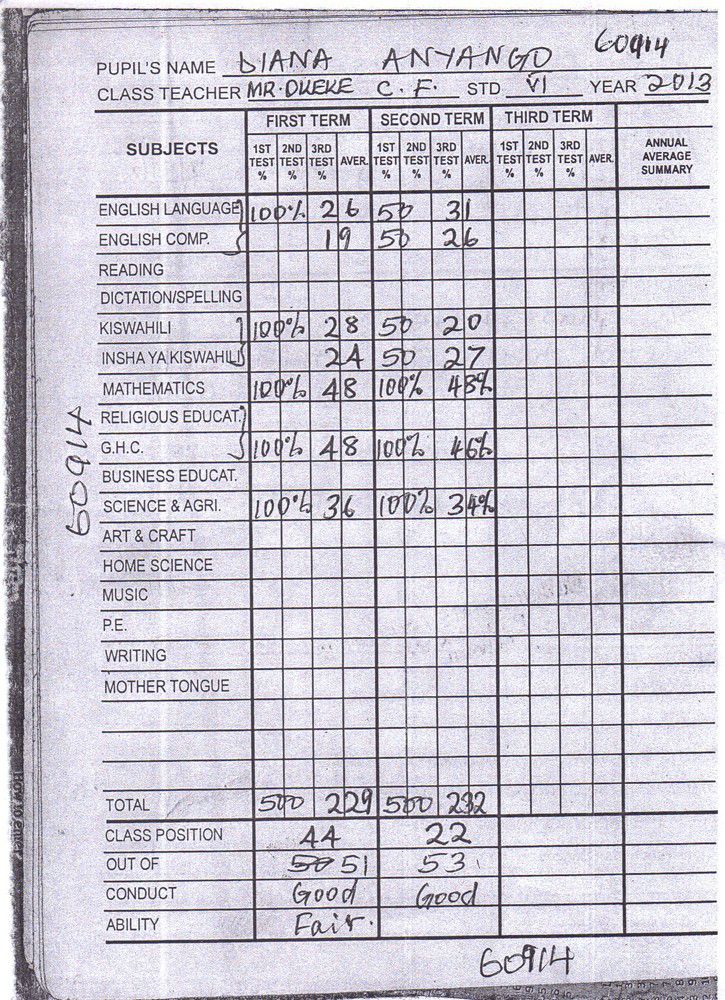 60914
PUPIL'S NAME DIANA ANYANGO
CLASS TEACHER MR. OKEKE C. F. STD VI YEAR 2013
SUBJECTS FIRST TERM SECOND TERM THIRD TERM ANNUAL AVERAGE SUMMARY
1ST TEST % 2ND TEST % 3RD TEST % AVER. 1ST TEST % 2ND TEST % 3RD TEST % AVER. 1ST TEST % 2ND TEST % 3RD TEST % AVER.
ENGLISH LANGUAGE 100% 26 50 31
ENGLISH COMP. 19 50 26
READING
DICTATION/SPELLING
KISWAHILI 100% 28 50 20
INSHA YA KISWAHILI 24 50 27
MATHEMATICS 100% 48 100% 48%
RELIGIOUS EDUCAT.
G.H.C. 100% 48 100% 46%
BUSINESS EDUCAT.
SCIENCE & AGRI. 100% 36 100% 34%
ART & CRAFT
HOME SCIENCE
MUSIC
P.E.
WRITING
MOTHER TONGUE
TOTAL 500 229 500 232
CLASS POSITION 44 22
OUT OF 50 51 53
CONDUCT Good Good
ABILITY Fair.
60914
60914